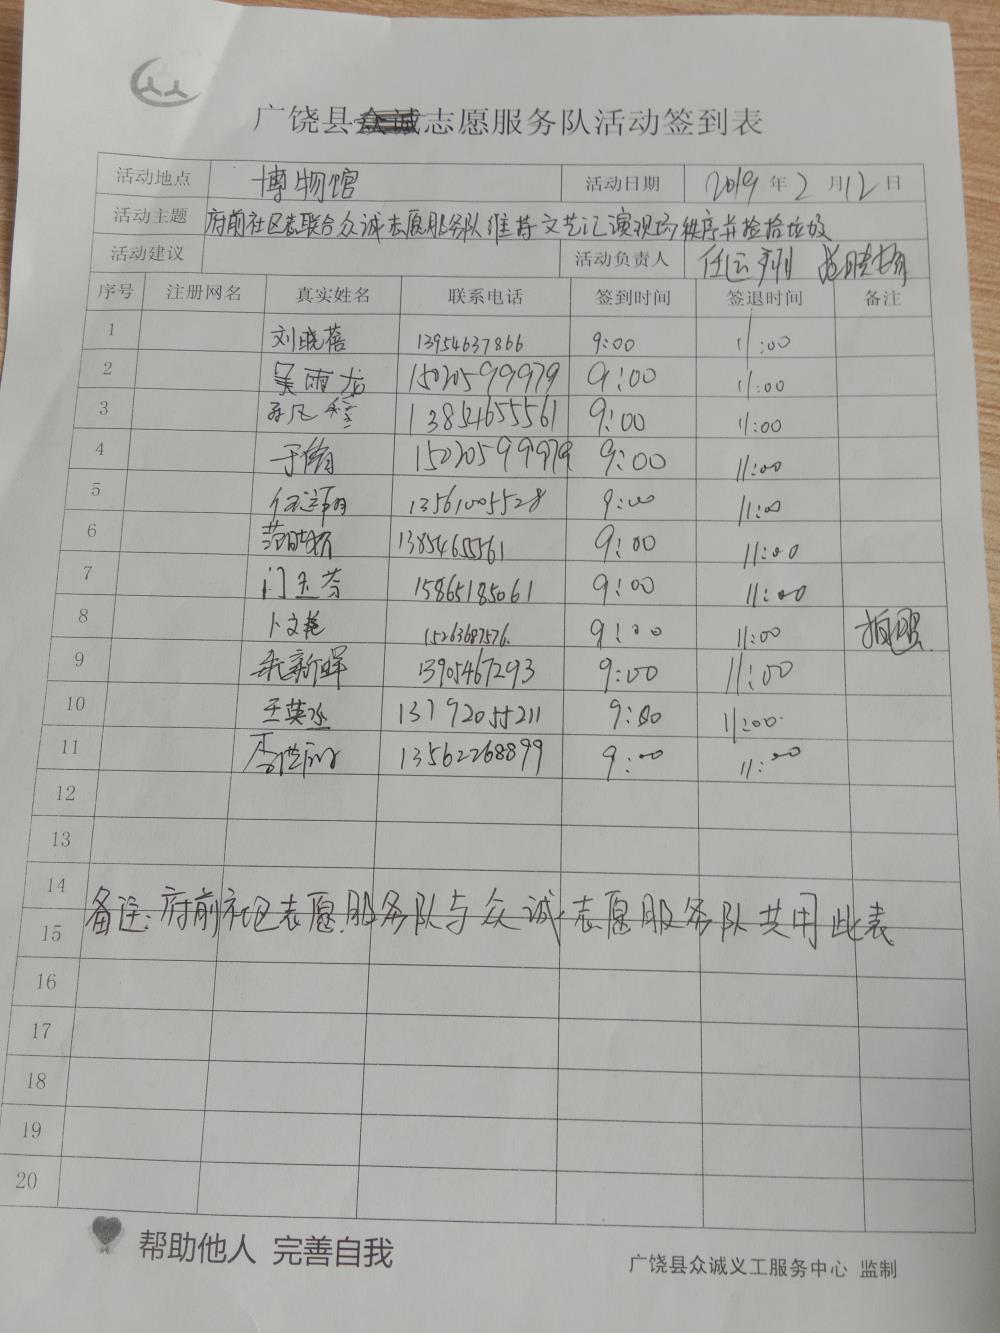 广饶县众诚志愿服务队活动签到表
活动地点 博物馆 活动日期 2019年2月12日
活动主题 府前社区志联合众诚志愿服务队维持文艺汇演现场秩序并捡拾垃圾
活动建议 活动负责人 任运翔
序号 注册网名 真实姓名 联系电话 签到时间 签退时间 备注
1 刘晓蓓 13954637866 9:00 11:00
2 吴雨龙 15020599979 9:00 11:00
3 13854655561 9:00 11:00
4 于倩 15020599979 9:00 11:00
5 任运翔 13561005528 9:00 11:00
6 1385465561 9:00 11:00
7 门玉芬 15865185061 9:00 11:00
8 卜文艳 15263687576. 9:00 11:00 拍照
9 新晖 13905467293 9:00 11:00
10 王英 13792055211 9:00 11:00
11 李 13562268899 9:00 11:00
12
13
14
备注:府前社区志愿服务队与众诚志愿服务队共用此表
15
16
17
18
19
20
帮助他人 完善自我
广饶县众诚义工服务中心 监制